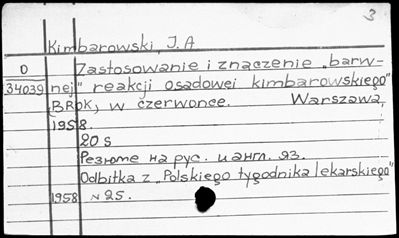 3
Kimbarowski, J. A
O Zastosowanie i znaczenie „barw-
34039 nej” reakcji osadowej kimbarowskiego”
(BROK), w czerwonce. Warszawa,
1958.
20 s
Резюме на рус. и англ. яз.
Odbitka z „Polskiego tygodnika lekarskiego”
1958 N 25.